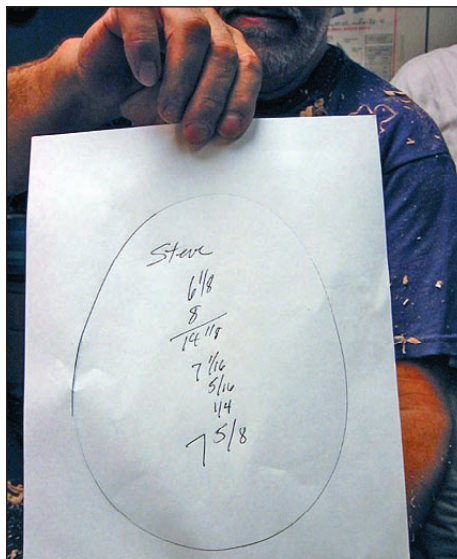 Steve
6 1/8
8
14 1/8
7 1/16
5/16
1/4
7 5/8